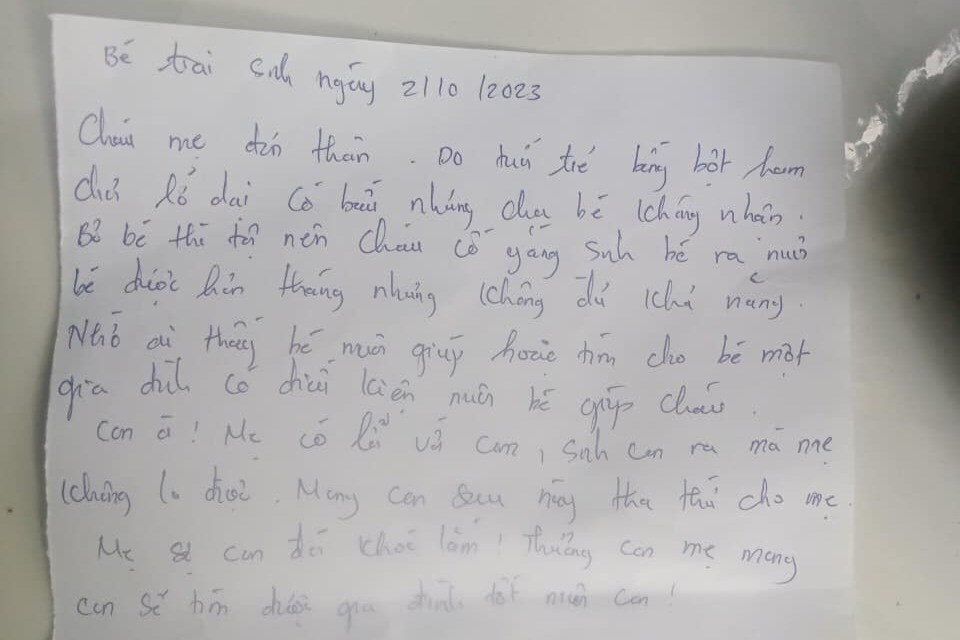 Bé trai sinh ngày 2/10/2023
Cháu mẹ đơn thân. Do tuổi trẻ bồng bột ham
chơi lỡ dại có bầu nhưng cha bé không nhận.
Bỏ bé thì tội nên cháu cố gắng sinh bé ra nuôi
bé được hơn tháng nhưng không đủ khả năng.
Nhờ ai thấy bé nuôi giúp hoặc tìm cho bé một
gia đình có điều kiện nuôi bé giúp cháu.
Con à! Mẹ có lỗi với con, sinh con ra mà mẹ
không lo được. Mong con sau này tha thứ cho mẹ.
Mẹ sợ con đói khóc lắm! Thương con mẹ mong
con sẽ tìm được gia đình tốt nuôi con!